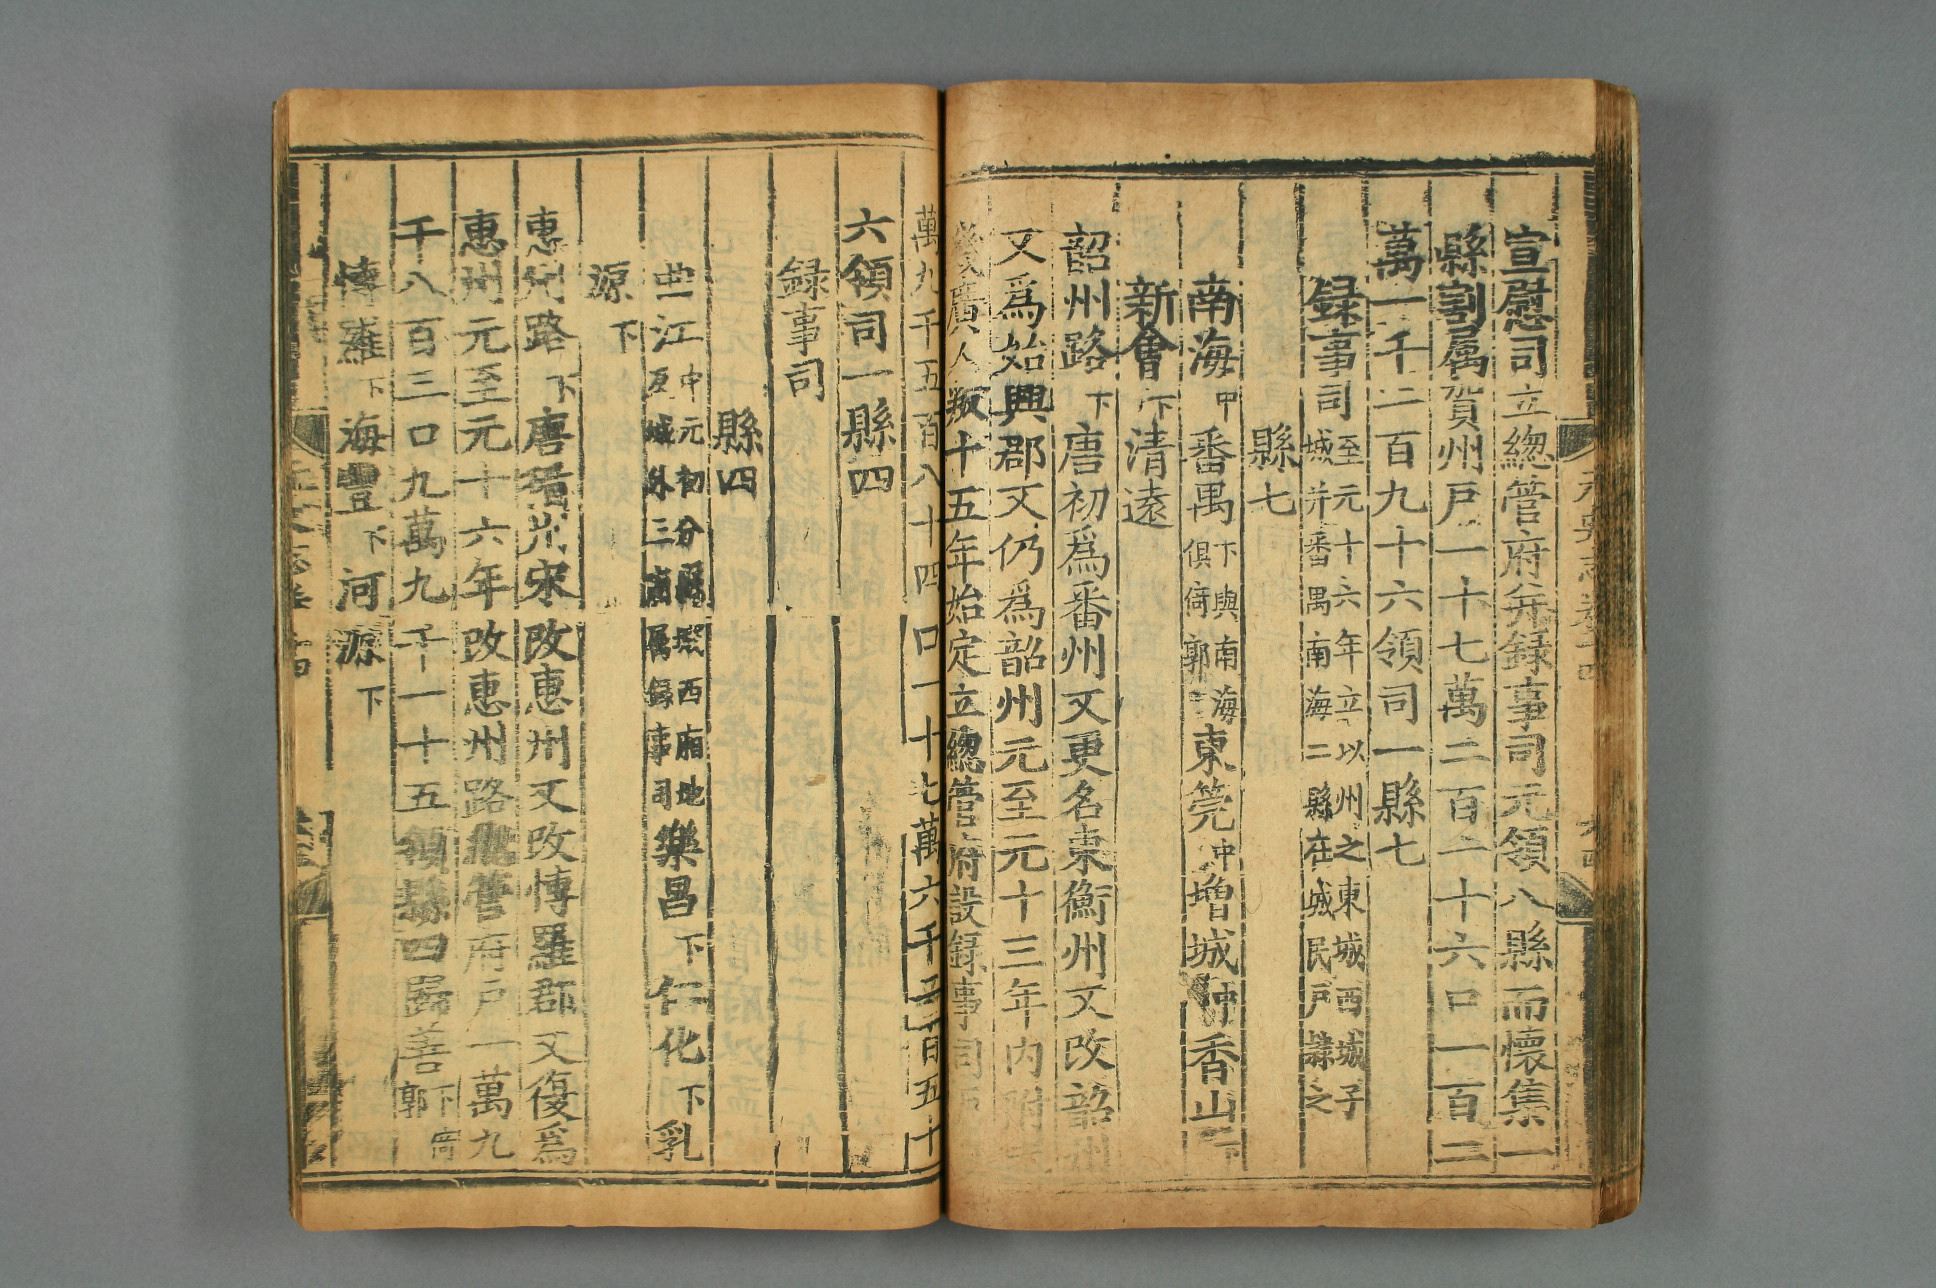 宣慰司立總管府并録事司元領八縣而懷集一
縣割属賀州戸一十七萬二百一十六口一百二
萬一千二百九十六領司一縣七
録事司至元十六年立以州之東城西城子
城并番禺南海二縣在城民戸隷之
縣七
南海中番禺下與南海
俱倚郭東筦中增城中香山下
新會下清遠
韶州路下唐初爲番州又更名東衡州又改韶州
又爲始興郡又仍爲韶州元至元十三年内附
廣人叛十五年始定立總管府設録事司
萬九千五百八十四口一十七萬六千二百五十
六領司一縣四
録事司
縣四
曲江中元初分縣城西廂地
及城外三廂属録事司樂昌下仁化下乳
源下
惠州路下唐循州宋改惠州又改博羅郡又復爲
惠州元至元十六年改惠州路總管府戸一萬九
千八百三口九萬九千一十五領縣四歸善下倚
郭
博羅下海豐下河源下